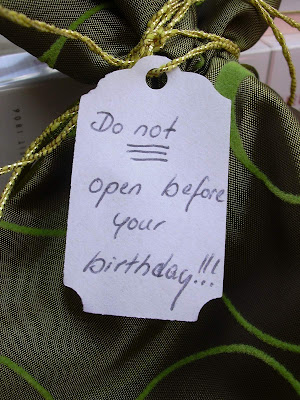 Do not
open before
your
birthday!!!